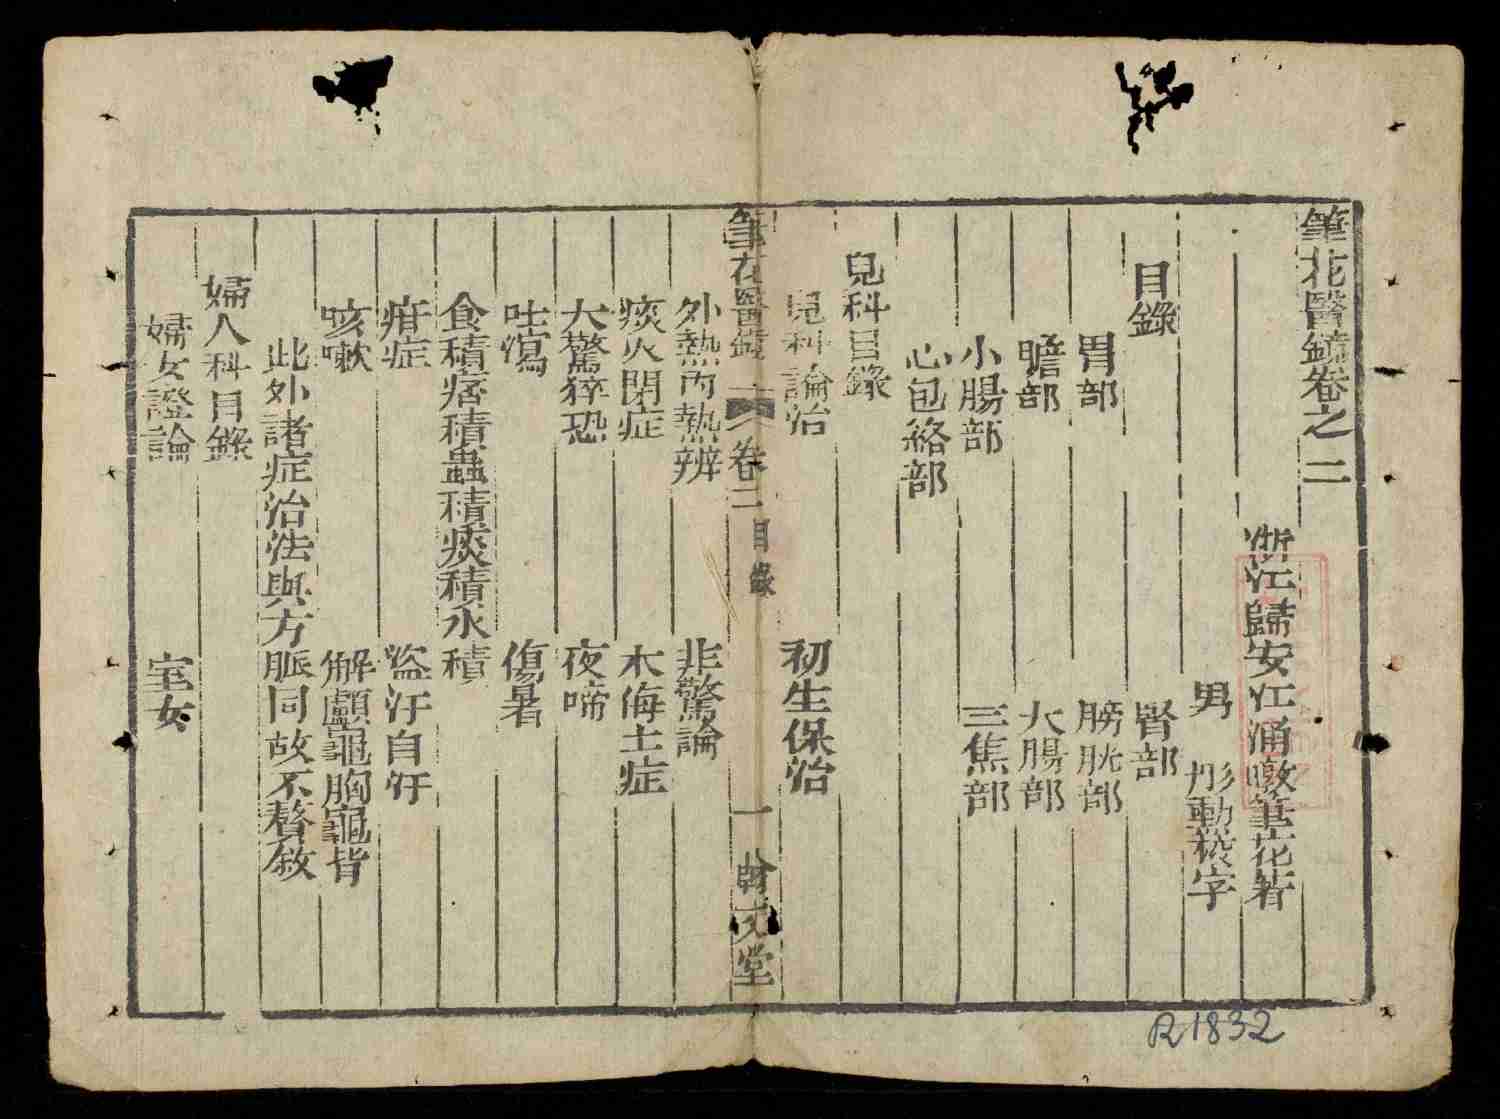 筆花醫鏡卷之二
浙江歸安江涵暾筆花著
男 彤勳䅵字
目錄
腎部
胃部 膀胱部
膽部 大腸部
小腸部 三焦部
心包絡部
兒科目錄
兒科論治 初生保治
筆花醫鏡 卷二 目錄 一 翰文堂
外熱內熱辨 非驚論
痰火閉症 木侮土症
大驚猝恐 夜啼
吐瀉 傷暑
食積痞積蟲積痰積水積
疳症 盜汗自汗
咳嗽 解顱龜胸龜背
此外諸症治法與方脈同故不贅敘
婦人科目錄
婦女證論 室女
R1832